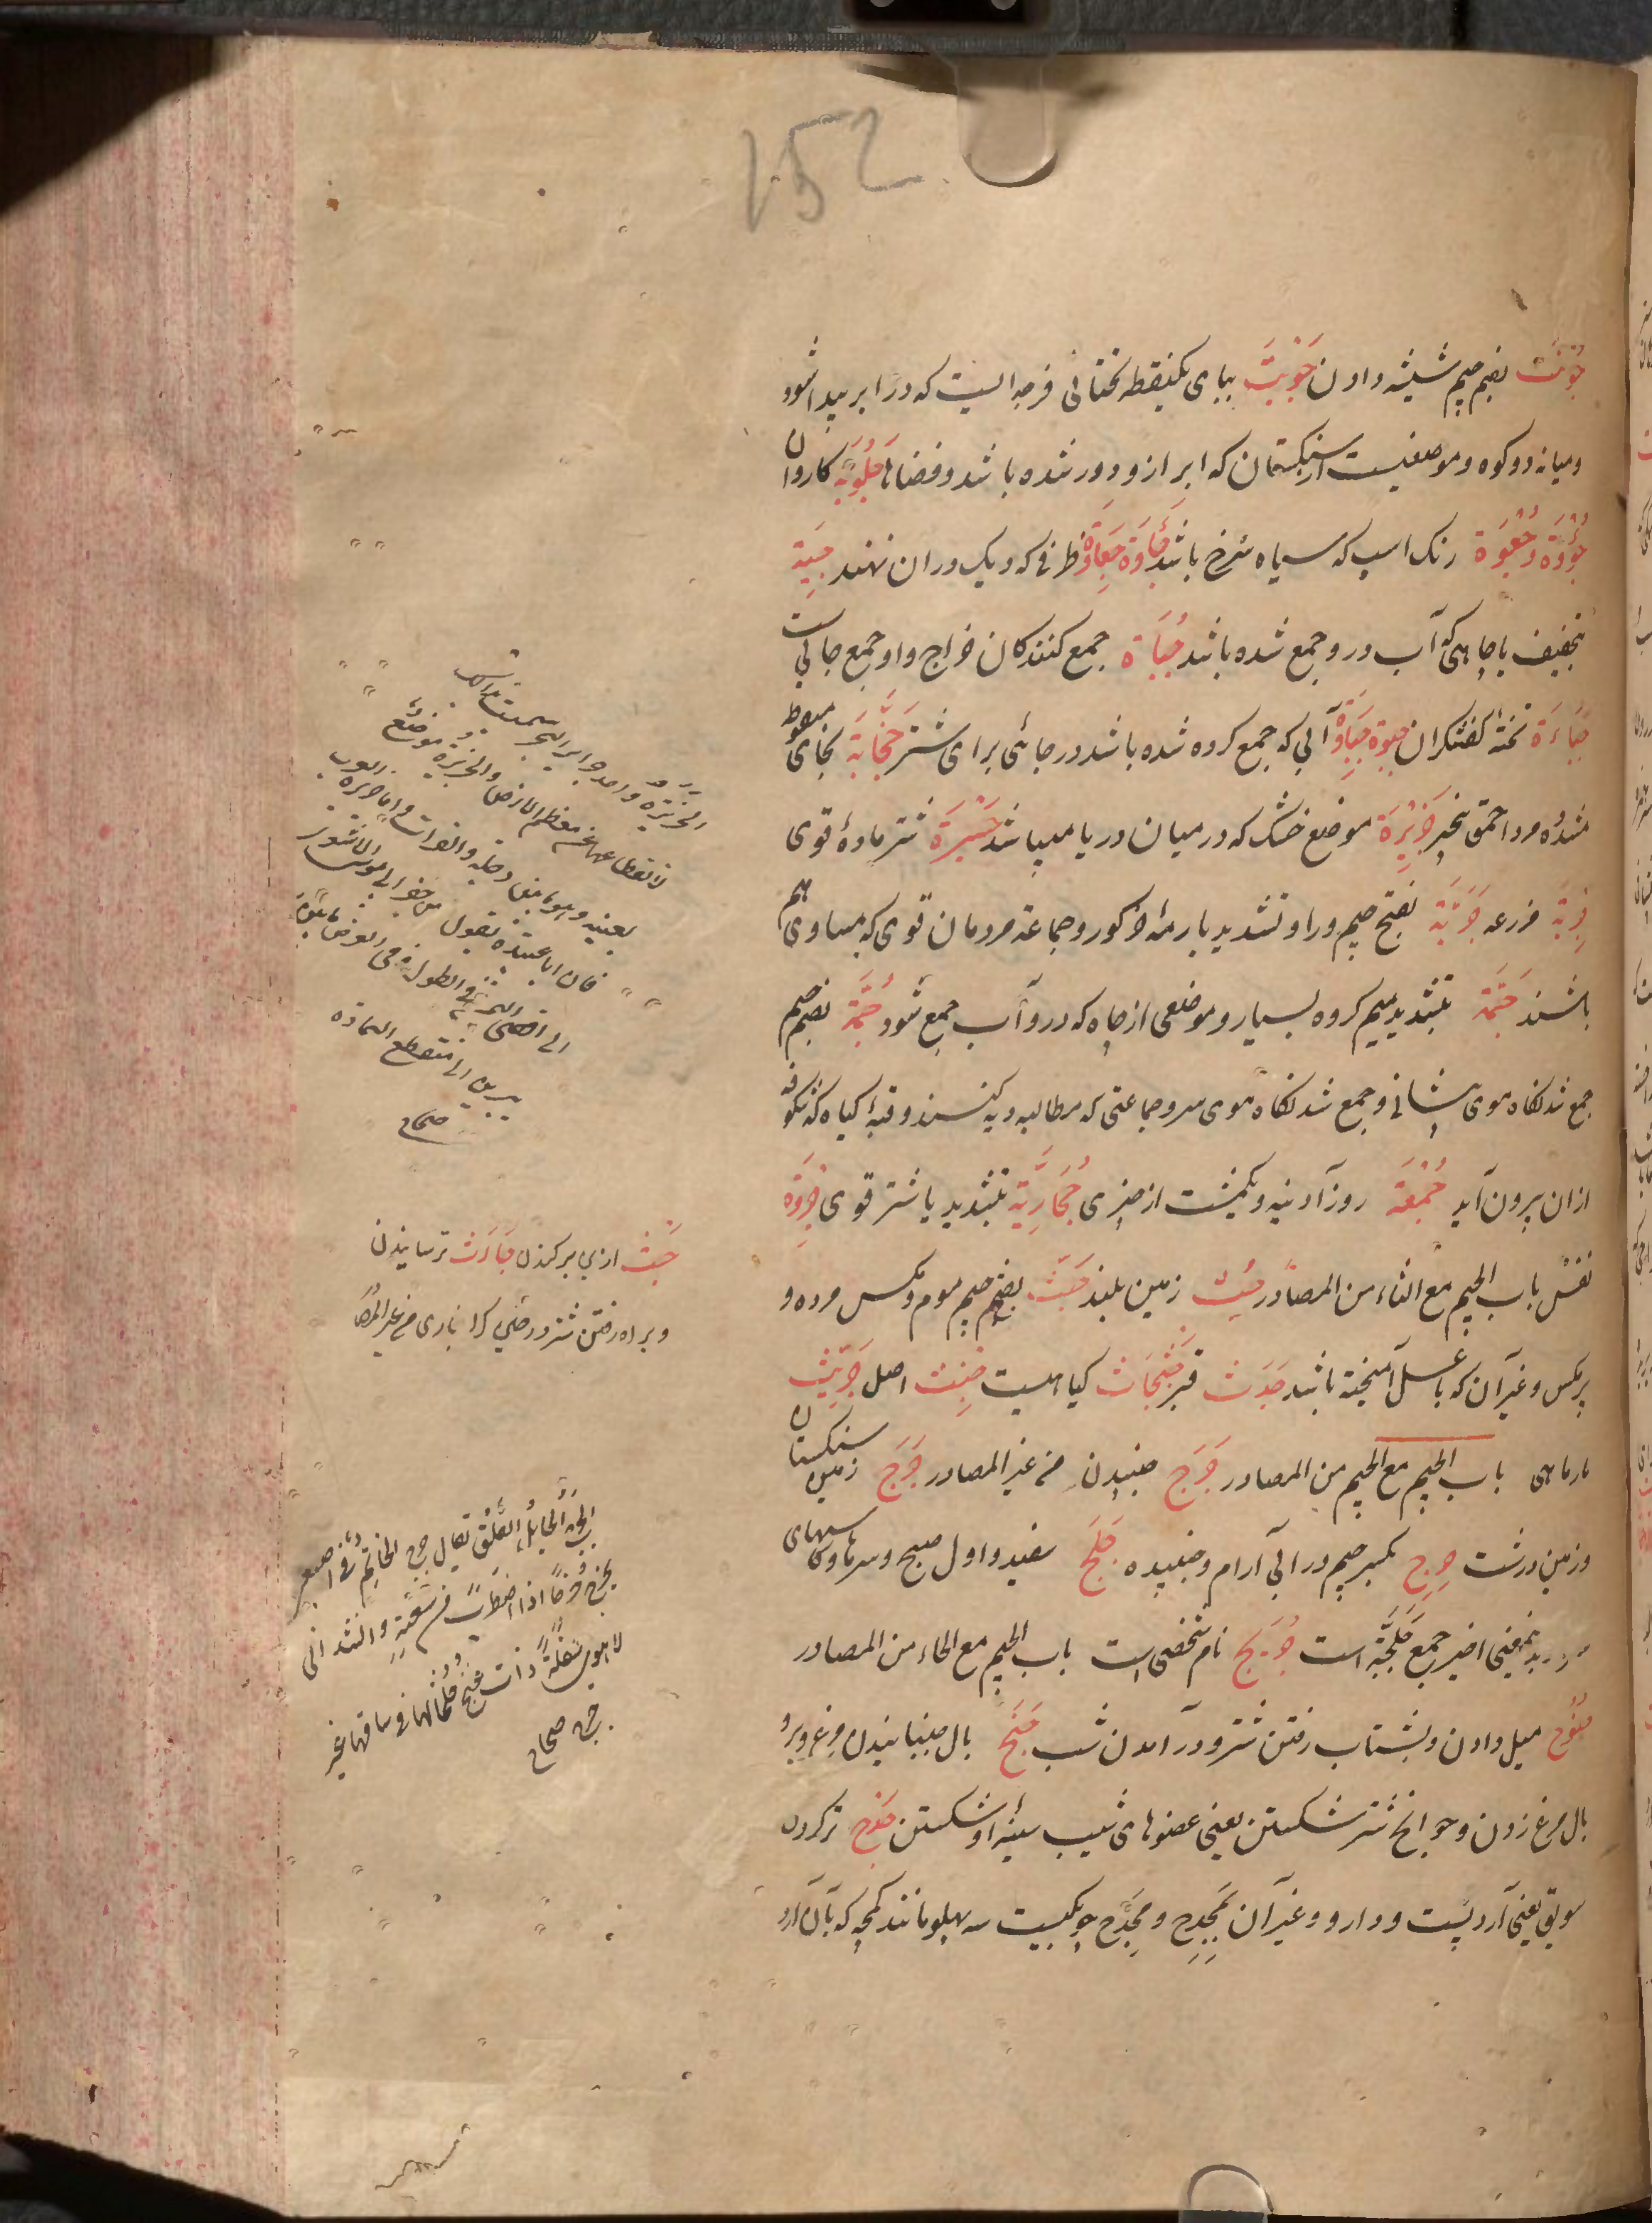 152
جُوْنَت بضم جیم شیشه دادن جَوْبَت ببای یکنقطه تحتانی فرجه ایست که در ابر پیدا شود
و میانه دو کوه و موضعیست از سنگستان که ابر ازو دور شده باشد و فضاها جَلُوْبَة کاروان
جُؤْوَة و جُعْوَة رنک اسپ که سیاه سرخ باشد جَأْوَة جِعَاوَة ظرفی که دیک در ان نهند جِیَة
بتخفیف یا چاهی که آب درو جمع شده باشد جُبَاة جمع کنندکان خراج و او جمع جابی است
جَبَاءَة تختهٔ کفشکران جِبْوَة جِبَاوَة آبی که جمع کرده شده باشد در جائی برای شتر جَخَّابَة بخای منقوطه
مشدده مرد احمق بیخیر جَزِیْرَة موضع خشک که در میان دریا میباشد جَسْرَة شتر مادهٔ قوی
جِرْبَة مزرعه جَرَبَّة بفتح جیم و را و تشدید با رمهٔ خر کور و جماعة مردمان قوی که مساوی هم
باشند جَمَّة بتشدید میم کروه بسیار و موضعی از چاه که درو آب جمع شود جُمَّة بضم جیم
جمع شدنکاه موی پیشانی و جمع شدنکاه موی سر و جماعتی که مطالبه دیه کنند و قبهٔ کیاه که شکوفه
ازان بیرون آید جُمْعَة روز آدینه و یکمشت از چیزی جُخَارِیَّة بتشدید یا شتر قوی جِرْوَة
نفس باب الجیم مع الثاء من المصادر جُث زمین بلند جَثّ بفتح جیم موم و مکس مرده و
پر مکس و غیر آن که با عسل آمیخته باشد جَدَث قبر جَثْجَاث کیاهیست جِنث اصل جِرِّیث
مارماهی باب الجیم مع الجیم من المصادر جَرَج جنبیدن من غیر المصادر جَرَج زمین سنکستان
و زمین درشت جِرِج بکسر جیم و را بی آرام و جنبیده جَلَج سفید و اول صبح و سرها و کاسهای
سر و بدینمعنی اخیر جمع جَلَجَة است جُرَیج نام شخصی است باب الجیم مع الحاء من المصادر
جُنُوْح میل دادن و بشتاب رفتن شتر و در آمدن شب جَنْح بال جنبانیدن مرغ و بر
بال مرغ زدن و جوانح شتر شکستن یعنی عضوهای شیب سینهٔ او شکستن جَدْح تر کردن
سویق یعنی آرد پست و دارو و غیر آن بمِجْدَح و مِجْدَح چوبکیست سه پهلو مانند کمچه که بآن آرد
الجزیرة واحدة جزایر البحر سمیت بذلک
لانقطاعها عن معظم الارض والجزیرة موضع
بعینه و هو ما بین دجلة والفرات و اما جزیرة العرب
فان ابا عبیدة یقول من حفر ابی موسی الاشعری
الی اقصی الیمن فی الطول و فی العرض ما بین رمل
یبرین الی منقطع السماوة
صحاح
جَثّ از بن بر کندن جَاَث ترسانیدن
و براه رفتن شتر در حالی کرانباری من غیر المص
الجرج الجایل القلق یقال جرج الخاتم فی اصبعی
یجرج جرجاً اذا اضطرب من سعته وانشد
جرج صحاح